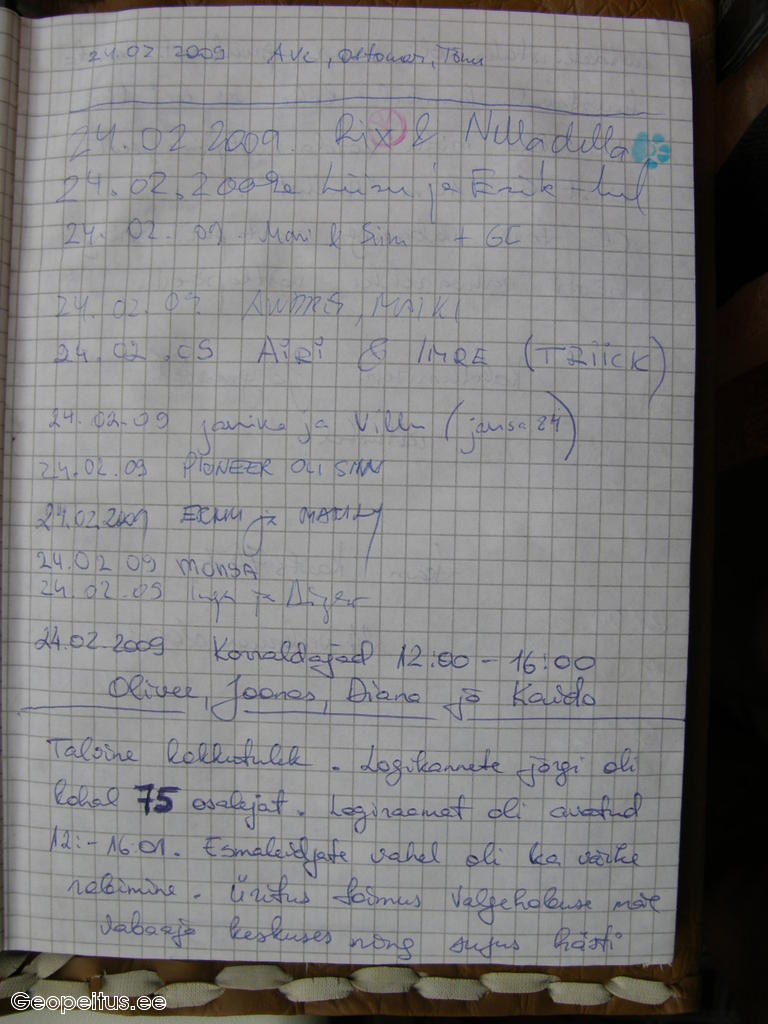 24.02 2009 Ave, Ottomar, Tõnu
24.02 2009. Rix & Nilladilla
24.02.2009a Liisu ja Erik
24.02.09 Mari & Siim + GC
24.02.09 ANDRES, MAIKI
24.02.09 AiRi & IMRE (TRIICK)
24.02.09 janika ja Villu (jansa84)
24.02.09 PIONEER OLI SIIN
24.02.2009 ja
24.02 09 MONSA
24.02.09 Inga ja Aigar
24.02.2009 Korraldajad 12:00 - 16:00
Oliver, Joonas, Diana ja Kaido
Talvine kokkutulek. Logikannete järgi oli
kohal 75 osalejat. Logiraamat oli avatud
12:-16:01. Esmaleidjate vahel oli ka väike
rabimine. Üritus toimus Valgehobuse mäe
vabaaja keskuses ning sujus hästi
Geopeitus.ee